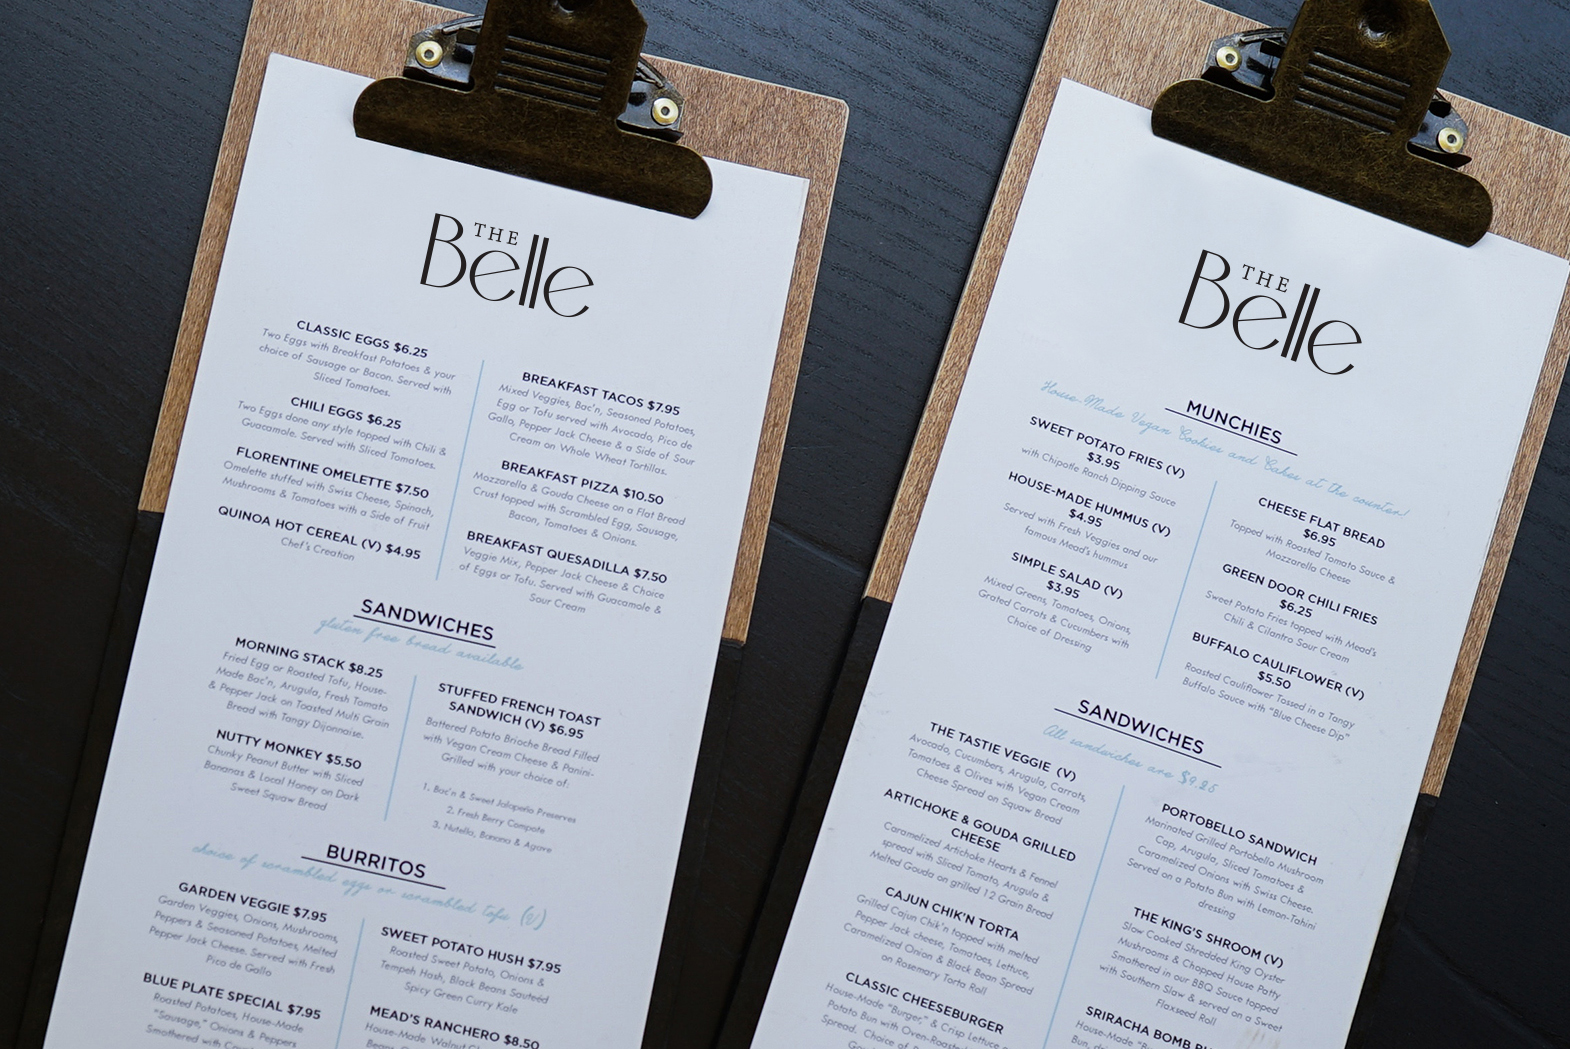 THE
Belle
CLASSIC EGGS $6.25
Two Eggs with Breakfast Potatoes & your
choice of Sausage or Bacon. Served with
Sliced Tomatoes.
CHILI EGGS $6.25
Two Eggs done any style topped with Chili &
Guacamole. Served with Sliced Tomatoes.
FLORENTINE OMELETTE $7.50
Omelette stuffed with Swiss Cheese, Spinach,
Mushrooms & Tomatoes with a Side of Fruit
QUINOA HOT CEREAL (V) $4.95
Chef's Creation
BREAKFAST TACOS $7.95
Mixed Veggies, Bac'n, Seasoned Potatoes,
Egg or Tofu served with Avocado, Pico de
Gallo, Pepper Jack Cheese & a Side of Sour
Cream on Whole Wheat Tortillas.
BREAKFAST PIZZA $10.50
Mozzarella & Gouda Cheese on a Flat Bread
Crust topped with Scrambled Egg, Sausage,
Bacon, Tomatoes & Onions.
BREAKFAST QUESADILLA $7.50
Veggie Mix, Pepper Jack Cheese & Choice
of Eggs or Tofu. Served with Guacamole &
Sour Cream
SANDWICHES
gluten free bread available
MORNING STACK $8.25
Fried Egg or Roasted Tofu, House-
Made Bac'n, Arugula, Fresh Tomato
& Pepper Jack on Toasted Multi Grain
Bread with Tangy Dijonnaise.
NUTTY MONKEY $5.50
Chunky Peanut Butter with Sliced
Bananas & Local Honey on Dark
Sweet Squaw Bread
STUFFED FRENCH TOAST
SANDWICH (V) $6.95
Battered Potato Brioche Bread Filled
with Vegan Cream Cheese & Panini-
Grilled with your choice of:
1. Bac'n & Sweet Jalapeño Preserves
2. Fresh Berry Compote
3. Nutella, Banana & Agave
BURRITOS
choice of scrambled eggs or scrambled tofu (V)
GARDEN VEGGIE $7.95
Garden Veggies, Onions, Mushrooms,
Peppers & Seasoned Potatoes, Melted
Pepper Jack Cheese. Served with Fresh
Pico de Gallo
BLUE PLATE SPECIAL $7.95
Roasted Potatoes, House-Made
"Sausage," Onions & Peppers
Smothered with
SWEET POTATO HUSH $7.95
Roasted Sweet Potato, Onions &
Tempeh Hash, Black Beans Sauteéd
Spicy Green Curry Kale
MEAD'S RANCHERO $8.50
House-Made Walnut
THE
Belle
MUNCHIES
House-Made Vegan Cookies and Cakes at the counter!
SWEET POTATO FRIES (V)
$3.95
with Chipotle Ranch Dipping Sauce
HOUSE-MADE HUMMUS (V)
$4.95
Served with Fresh Veggies and our
famous Mead's hummus
SIMPLE SALAD (V)
$3.95
Mixed Greens, Tomatoes, Onions,
Grated Carrots & Cucumbers with
Choice of Dressing
CHEESE FLAT BREAD
$6.95
Topped with Roasted Tomato Sauce &
Mozzarella Cheese
GREEN DOOR CHILI FRIES
$6.25
Sweet Potato Fries topped with Mead's
Chili & Cilantro Sour Cream
BUFFALO CAULIFLOWER (V)
$5.50
Roasted Cauliflower Tossed in a Tangy
Buffalo Sauce with "Blue Cheese Dip"
SANDWICHES
All sandwiches are $9.25
THE TASTIE VEGGIE (V)
Avocado, Cucumbers, Arugula, Carrots,
Tomatoes & Olives with Vegan Cream
Cheese Spread on Squaw Bread
ARTICHOKE & GOUDA GRILLED
CHEESE
Caramelized Artichoke Hearts & Fennel
spread with Sliced Tomato, Arugula &
Melted Gouda on grilled 12 Grain Bread
CAJUN CHIK'N TORTA
Grilled Cajun Chik'n topped with melted
Pepper Jack cheese, Tomatoes, Lettuce,
Caramelized Onion & Black Bean Spread
on Rosemary Torta Roll
CLASSIC CHEESEBURGER
House-Made "Burger," & Crisp Lettuce
Potato Bun with Oven-Roasted
Spread. Choice of
PORTOBELLO SANDWICH
Marinated Grilled Portobello Mushroom
Cap, Arugula, Sliced Tomatoes &
Caramelized Onions with Swiss Cheese.
Served on a Potato Bun with Lemon-Tahini
dressing
THE KING'S SHROOM (V)
Slow Cooked Shredded King Oyster
Mushrooms & Chopped House Patty
Smothered in our BBQ Sauce topped
with Southern Slaw & served on a Sweet
Flaxseed Roll
SRIRACHA BOMB
House-Made